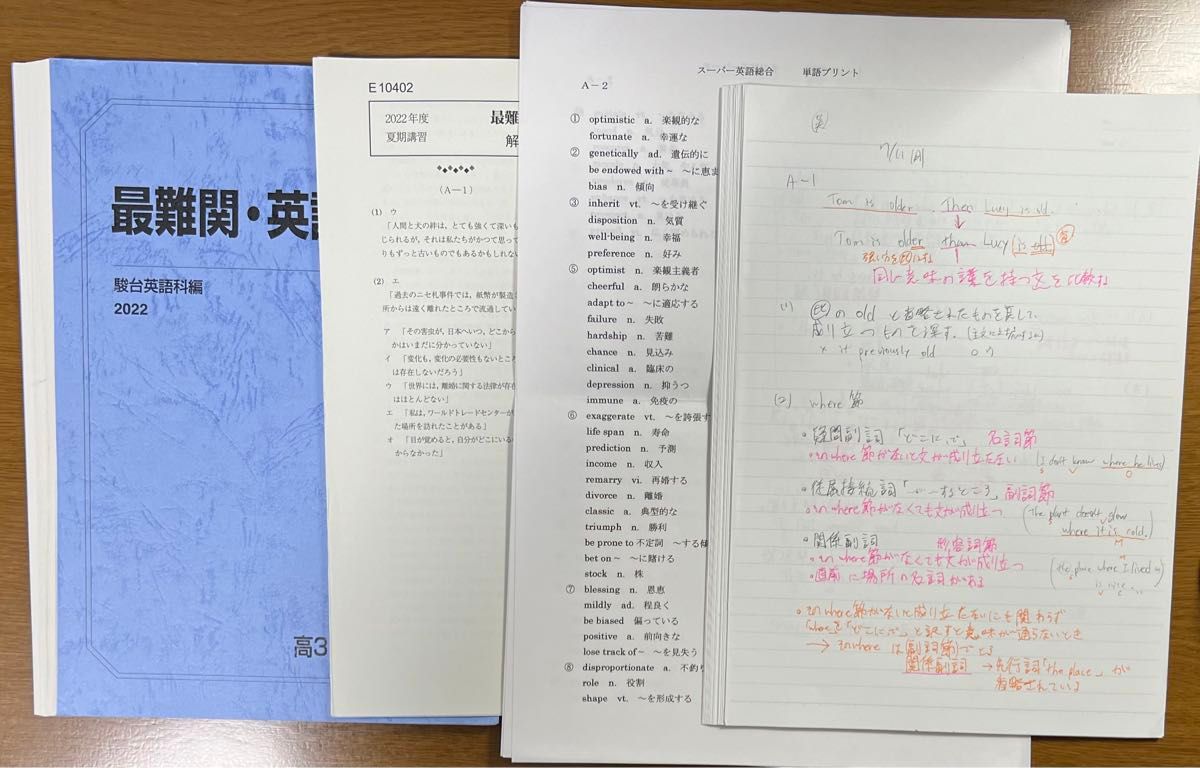 最難関・英
駿台英語科編
2022
高3
E10402
2022年度
夏期講習
最難
解
(A-1)
(1) ウ
「人間と犬の絆は、とても強くて深いも
じられるが、それは私たちがかつて思って
りもずっと古いものでもあるかもしれない
(2) エ
「過去のニセ札事件では、紙幣が製造
所からは遠く離れたところで流通してい
ア 「その害虫が、日本へいつ、どこから
かはいまだに分かっていない」
イ 「変化も、変化の必要性もないところ
は存在しないだろう」
ウ 「世界には、離婚に関する法律が存在
はほとんどない」
エ 「私は、ワールドトレードセンターが
た場所を訪れたことがある」
オ 「目が覚めると、自分がどこにいるの
からなかった」
スーパー英語総合 単語プリント
A-2
① optimistic a. 楽観的な
fortunate a. 幸運な
② genetically ad. 遺伝的に
be endowed with~ ~に恵ま
bias n. 傾向
③ inherit vt. ~を受け継ぐ
disposition n. 気質
well-being n. 幸福
preference n. 好み
⑤ optimist n. 楽観主義者
cheerful a. 朗らかな
adapt to~ ~に適応する
failure n. 失敗
hardship n. 苦難
chance n. 見込み
clinical a. 臨床の
depression n. 抑うつ
immune a. 免疫の
⑥ exaggerate vt. ~を誇張す
life span n. 寿命
prediction n. 予測
income n. 収入
remarry vi. 再婚する
divorce n. 離婚
classic a. 典型的な
triumph n. 勝利
be prone to 不定詞 ~する傾
bet on~ ~に賭ける
stock n. 株
⑦ blessing n. 恩恵
mildly ad. 程良く
be biased 偏っている
positive a. 前向きな
lose track of~ ~を見失う
⑧ disproportionate a. 不釣り
role n. 役割
shape vt. ~を形成する
7/11
A-1
Tom is older. Then Lucy is old.
Tom is older than Lucy (is old)
同じ意味の語を持つ文を比較
(1) の old と省略されたものを戻して、
成り立つものを探す。
× it previously old
(2) where 節
・疑問副詞「どこに、で」 名詞節
・where節がないと文が成り立たない (I don't know where he lived)
S V O
・従属接続詞「～するところ」副詞節
・where節がなくても文が成り立つ (The plant doesn't grow
where it is cold.)
M
・関係副詞 形容詞節
・where節がなくても文が成り立つ (the place where I lived in)
・直前に場所の名詞がある
・where節がないと成り立たないにも関わらず
「どこに、で」と訳すと意味が通らないとき
→ where は
関係副詞 →先行詞「the place」が
省略されている